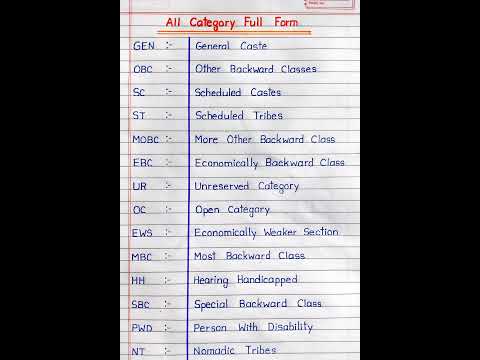 All Category Full Form
GEN :- General Caste
OBC :- Other Backward Classes
SC :- Scheduled Castes
ST :- Scheduled Tribes
MOBC :- More Other Backward Class
EBC :- Economically Backward Class
UR :- Unreserved Category
OC :- Open Category
EWS :- Economically Weaker Section
MBC :- Most Backward Class
HH :- Hearing Handicapped
SBC :- Special Backward Class
PWD :- Person With Disability
NT :- Nomadic Tribes